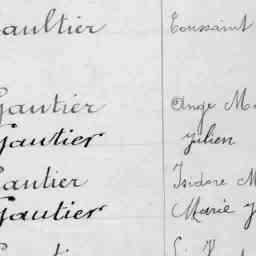 aultier Toussaint
Gautier Ange M
Gautier Julien
Gautier Isidore M
Gautier Marie J